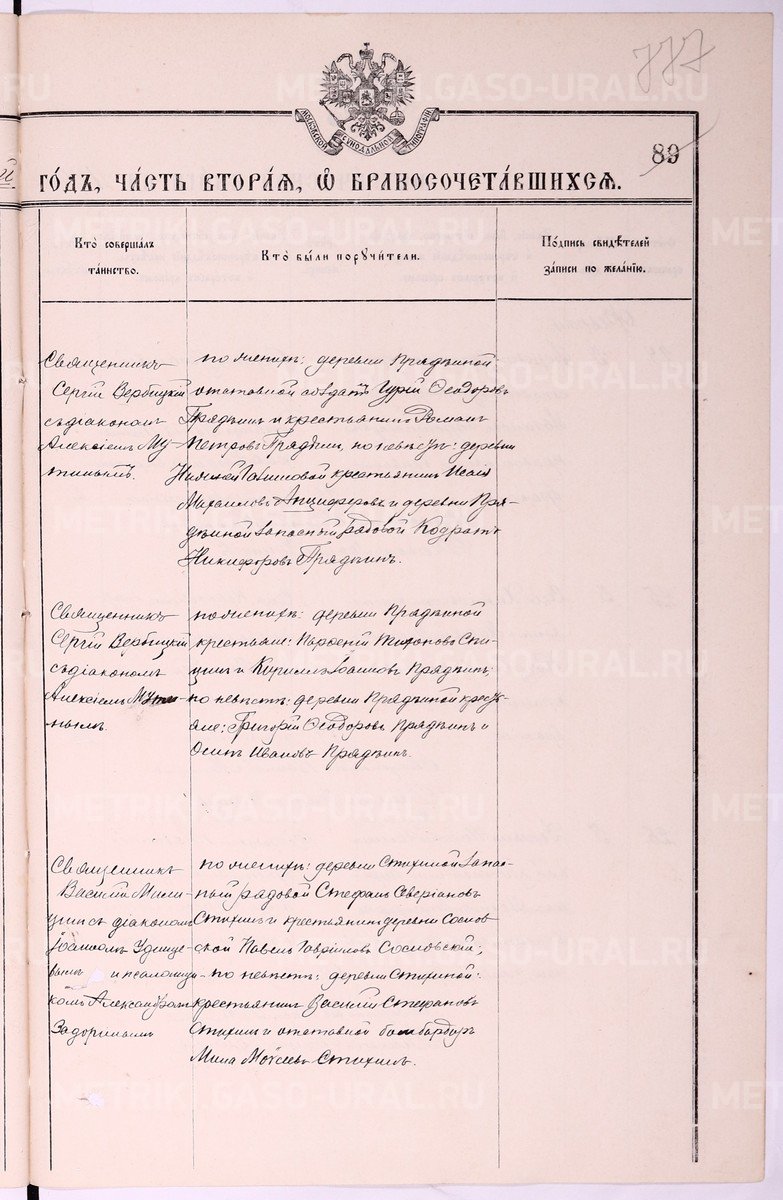 777
МОСКОВСКОЙ СѴНОДАЛЬНОЙ ТИПОГРАФІИ
89
го́дъ, ча́сть втора́ѧ, ѡ҆ бракосочета́вшихсѧ.
Кто̀ соверша́лъ
та́инство.
Кто̀ бы́ли поручи́тели.
По́дпись свидѣ́телей
за́писи по жела́нїю.
Священникъ
Сергій Вербицкій
съ діакономъ
Алексіемъ Му-
тинымъ.
по женихѣ: деревни Прядѣиной
отставной солдатъ Гурій Ѳеодоровъ
Прядѣинъ и крестьянинъ Романъ
Петровъ Прядѣинъ, по невѣстѣ: деревни
крестьянинъ Исаія
Михаиловъ Анциферовъ и деревни Пря-
дѣиной запасный рядовой Кодратъ
Никифоровъ Прядѣинъ.
Священникъ
Сергій Вербицкій
съ діакономъ
Алексіемъ Мути-
нымъ.
по женихѣ: деревни Прядѣиной
крестьяне: Парѳеній Тихоновъ Спи-
цинъ и Кириллъ Іоанновъ Прядѣинъ,
по невѣстѣ: деревни Прядѣиной кресть-
яне: Григорій Ѳеодоровъ Прядѣинъ и
Осипъ Ивановъ Прядѣинъ.
Священникъ
Василій Мили-
цинъ съ діакономъ
Іоанномъ Удинце-
вымъ и псаломщи-
комъ Александромъ
Задоринымъ
по женихѣ: деревни Стихиной запас-
ный рядовой Стефанъ Аверіановъ
Стихинъ и крестьянинъ деревни Соснов-
ской Павелъ Гавріиловъ Сосновскій;
по невѣстѣ: деревни Стихиной:
крестьянинъ Василій Стефановъ
Стихинъ и отставной бомбардиръ
Мина Моѵсеевъ Стихинъ.
METRIKI.GASO-URAL.RU